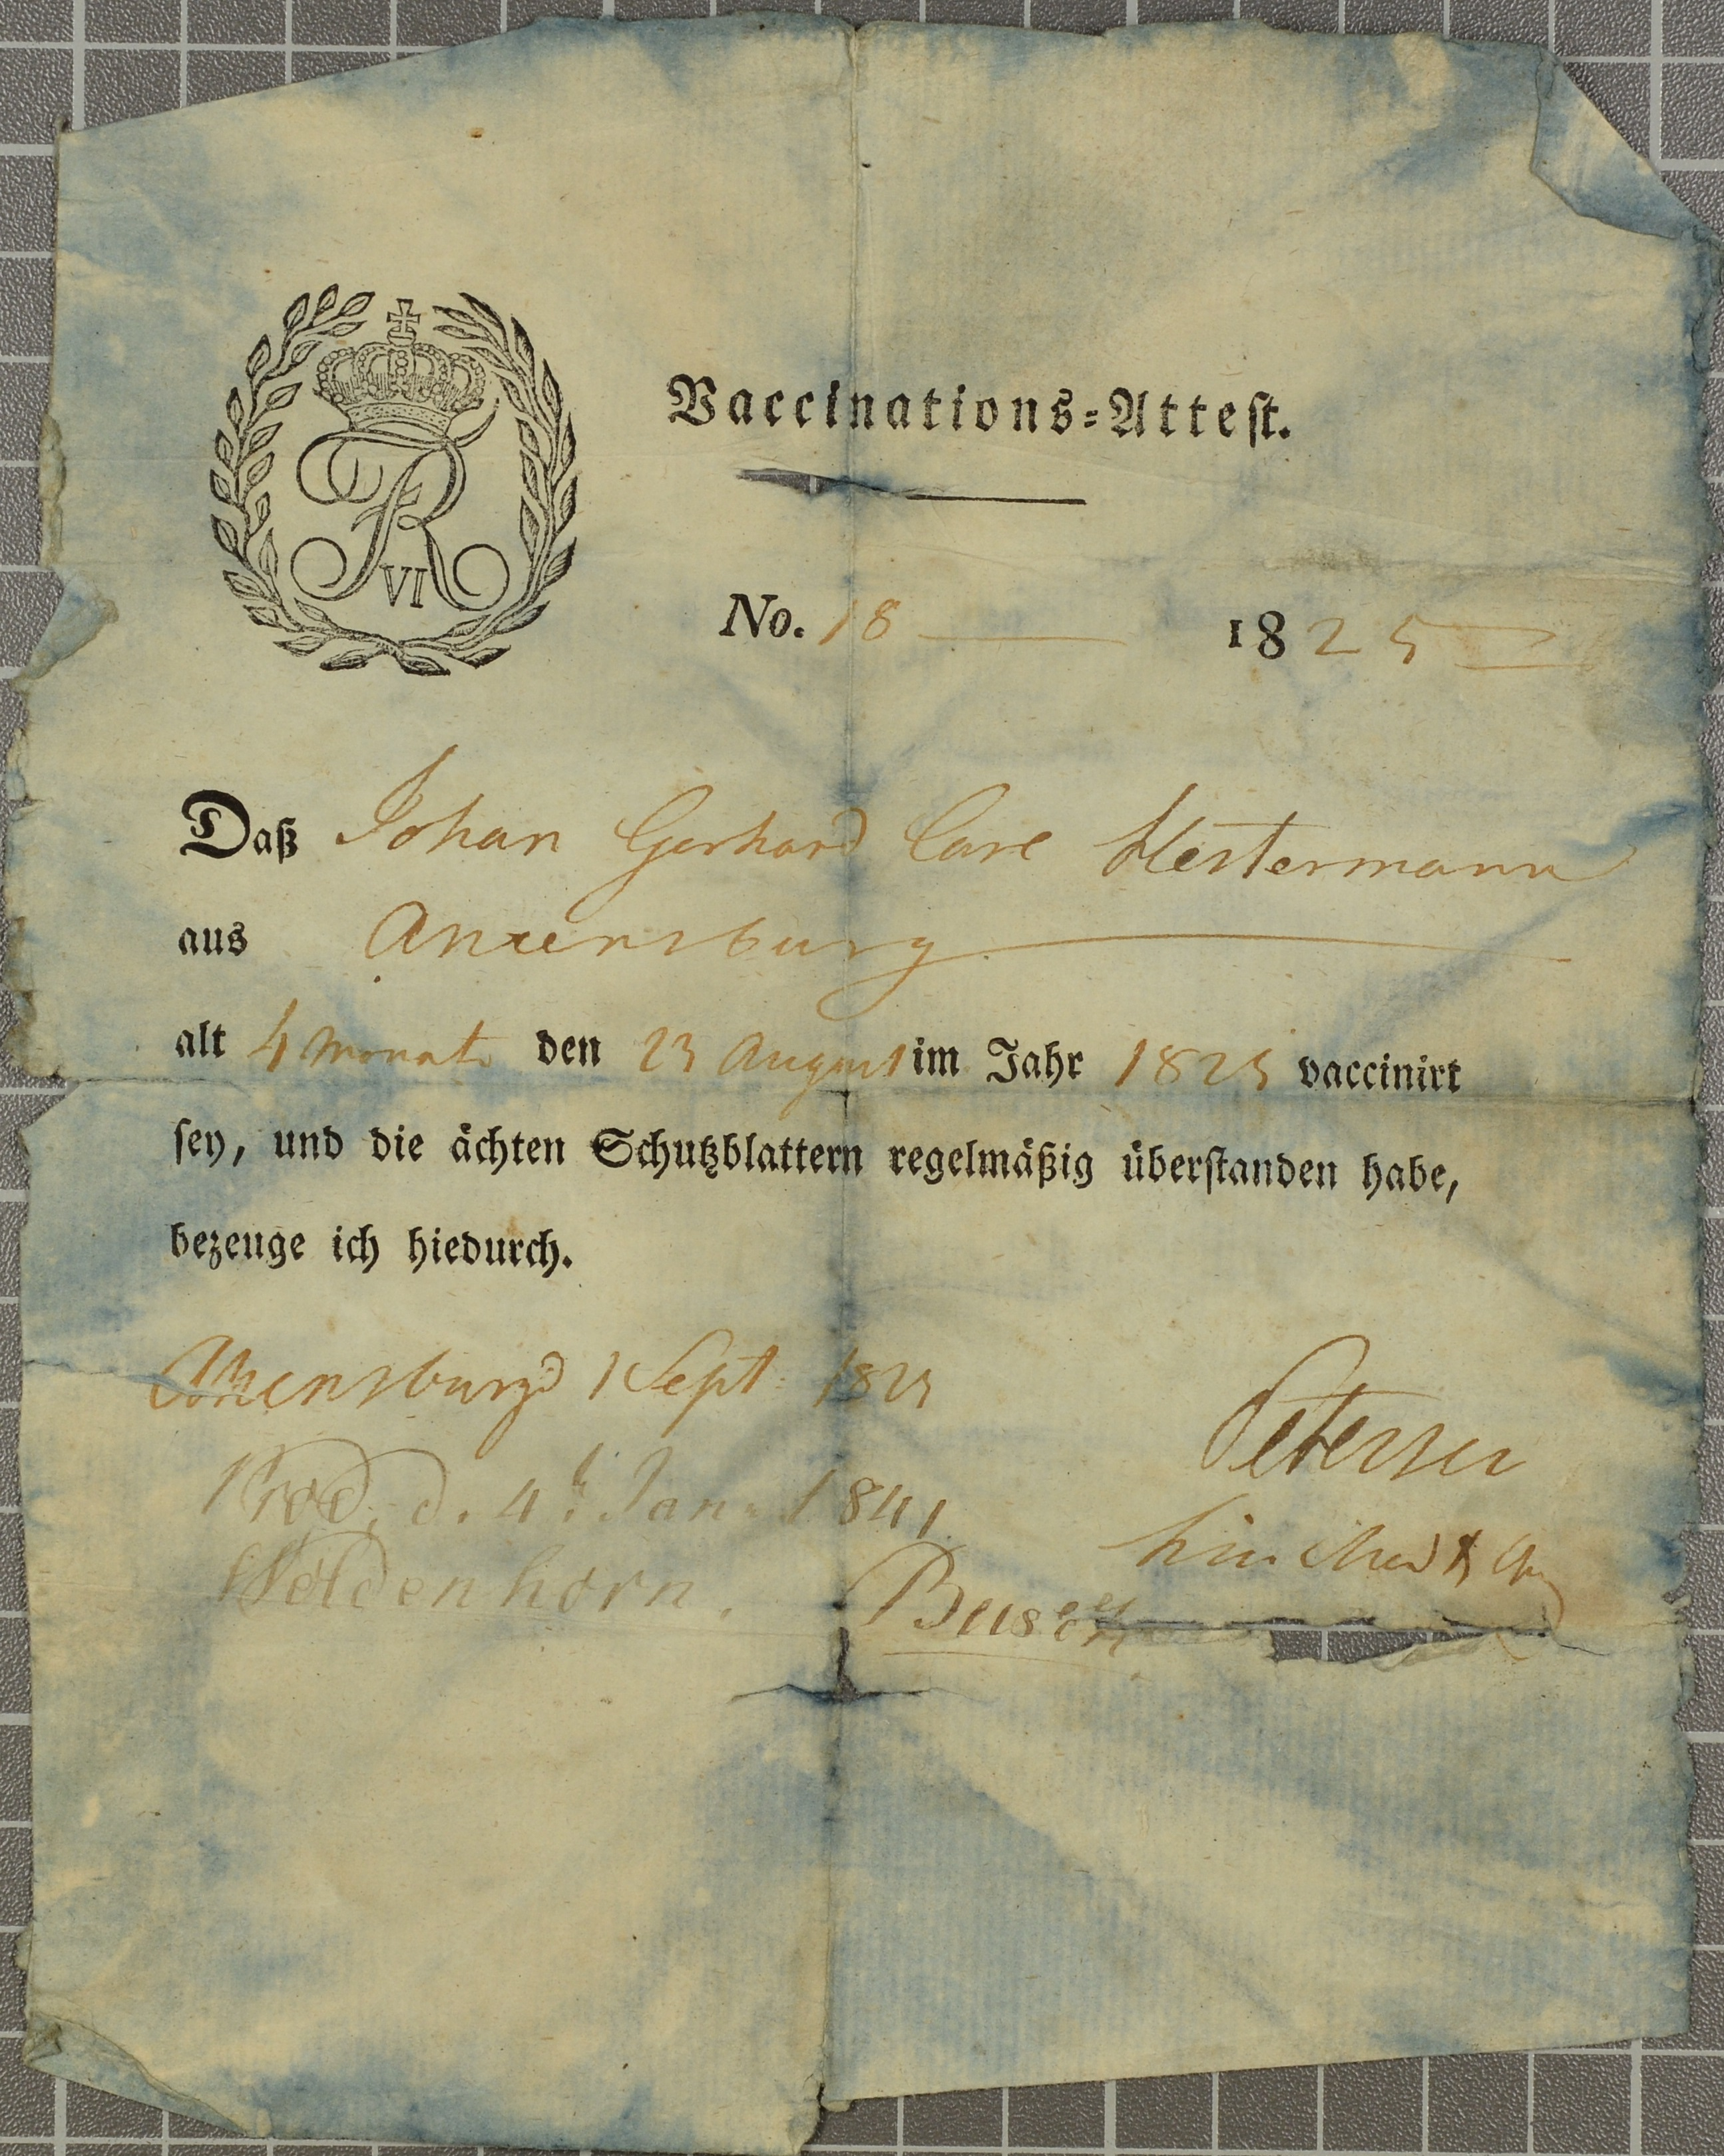 FR VI
Vaccinations-Attest.
No. 18 1825
Daß Johan Gerhard Carl Hestermann
aus Ahrensburg
alt 4 Monate den 23 August im Jahr 1825 vaccinirt
sey, und die ächten Schutzblattern regelmäßig überstanden habe,
bezeuge ich hiedurch.
Ahrensburg d 1 Sept: 1825
Petersen
Prod. d. 4t Jan. 1841
Woldenhorn. Busch